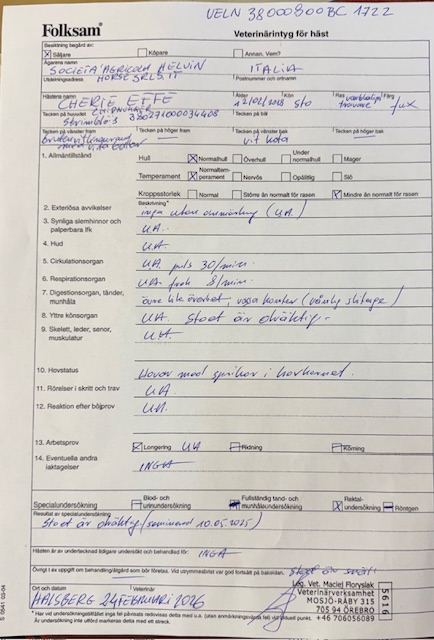 UELN 38000800BC 1722
Folksam
Veterinärintyg för häst
Besiktning begärd av:
Säljare
Köpare
Annan. Vem?
Ägarens namn
SOCIETA' AGRICOLA HELVIN
ITALIA
Utdelningsadress
HORSE SRLS, IT
Postnummer och ortnamn
Hästens namn
CHERIE EFFE
Ålder
12/02/2018
Kön
Sto
Ras
varmblodig travare
Färg
fux
Tecken på huvudet
CHIPNUMMER
Stjärnbläs 380271000034408
Tecken på bål
Tecken på vänster fram
Tecken på höger fram
Tecken på vänster bak
vit kota
Tecken på höger bak
1. Allmäntillstånd
Hull
Normalhull
Överhull
Under normalhull
Mager
Temperament
Normaltemperament
Nervös
Opålitlig
Slö
Kroppsstorlek
Normal
Större än normalt för rasen
Mindre än normalt för rasen
Beskrivning*
2. Exteriösa avvikelser
inga utan anmärkning (U.A.)
3. Synliga slemhinnor och palperbara lfk
U.A.
4. Hud
U.A.
5. Cirkulationsorgan
U.A. puls 30/min.
6. Respirationsorgan
U.A. frek 8/min.
7. Digestionsorgan, tänder, munhåla
8. Yttre könsorgan
U.A. Stoet är dräktig.
9. Skelett, leder, senor, muskulatur
U.A.
10. Hovstatus
Hovar med sprickor i hovhornet.
11. Rörelser i skritt och trav
U.A.
12. Reaktion efter böjprov
U.A.
13. Arbetsprov
Longering
UA
Ridning
Körning
14. Eventuella andra iakttagelser
INGA
Specialundersökning
Blod- och urinundersökning
Fullständig tand- och munhåleundersökning
Rektalundersökning
Röntgen
Resultat av specialundersökning
Stoet är dräktig (seminerad 10.05.2025)
Hästen är av undertecknad tidigare undersökt och behandlad för:
INGA
Övrigt t ex uppgift om behandling/åtgärd som bör företas. Vid utrymmesbrist var god fortsätt på baksidan.
Ort och datum
HALSBERG 24 FEBRUARI 2026
Veterinär
Leg. Vet. Maciej Florysiak
Veterinärverksamhet
MOSJÖ-RÅBY 315
705 94 ÖREBRO
+46 706056089
5616
S 0541 03-04